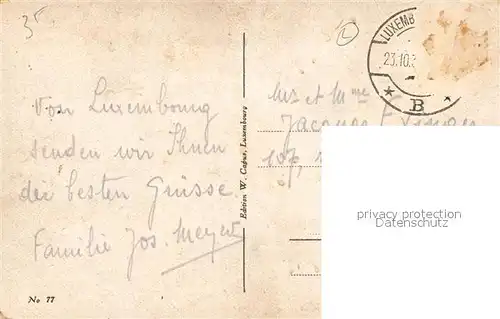 35
L
LUXEMB
23.10.
B
Von Luxembourg
senden wir Ihnen
die besten Grüsse.
Familie Jos. Meyer
Edition W. Capus, Luxembourg
Mr et Mme
Jacques
107,
privacy protection
Datenschutz
No 77